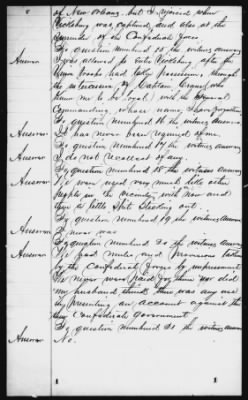 of New Orleans, but I rejoiced when
Vicksburg was captured, and also at the
surrender of the Confederate forces.
To question numbered 15 the witness answers
Answer I was allowed to enter Vicksburg, after the
Union troops had taken possession, through
the intercession of Captain Crane, who
knew me to be loyal, with the General
Commanding, whose name I have forgotten.
To question numbered 16 the witness answers
Answer It has never been required of me.
To question numbered 17 the witness answers
Answer I do not recollect of any.
To question numbered 18 the witness answers
Answer We were not very much molested
nights in the vicinity, with now and
then a little
To question numbered 19 the witness answers
Answer I never was
To question numbered 20 the witness answers
Answer We had mules and provisions taken
by the Confederate forces by impressment
We never were paid for them nor did
my husband think there was any use
by presenting an account against the
Confederate Government
To question numbered 21 the witness answers
Answer No.